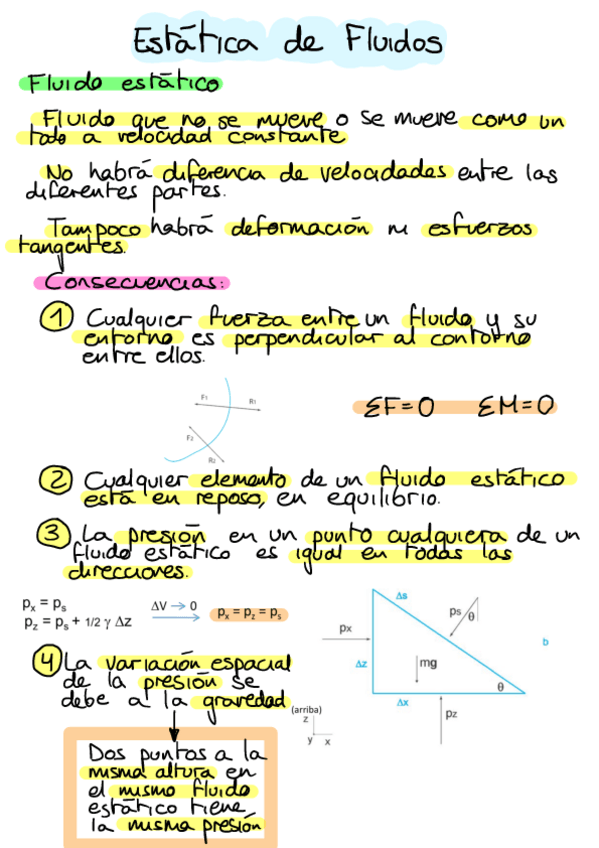 Estática de Fluidos
Fluido estático
Fluido que no se mueve o se mueve como un
todo a velocidad constante
No habrá diferencia de velocidades entre las
diferentes partes.
Tampoco habrá deformación ni esfuerzos
tangentes.
Consecuencias:
1 Cualquier fuerza entre un fluido y su
entorno es perpendicular al contorno
entre ellos.
F1
R1
F2
R2
ΣF=0 ΣM=0
2 Cualquier elemento de un fluido estático
está en reposo, en equilibrio.
3 La presión en un punto cualquiera de un
fluido estático es igual en todas las
direcciones.
px = ps
pz = ps + 1/2 γ Δz
ΔV → 0
px = pz = ps
Δs
ps θ
px
b
Δz
mg
θ
Δx
pz
4 La variación espacial
de la presión se
debe a la gravedad
(arriba)
z
y x
Dos puntos a la
misma altura en
el mismo fluido
estático tiene
la misma presión